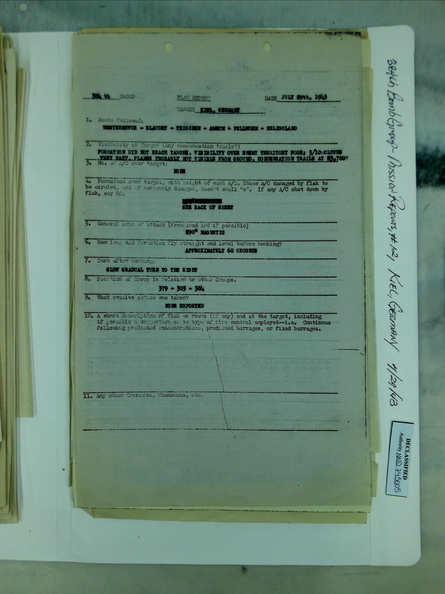 384 th GROUP FLAK REPORT DATE JULY 29th, 1943
TARGET KIEL, GERMANY
1. Route Followed.
2. Visibility at Target (Any condensation trails?)
FORMATION DID NOT REACH TARGET. VISIBILITY OVER ENEMY TERRITORY POOR; 3/10 CLOUDS
VERY HAZY. PLANES PROBABLY NOT VISIBLE FROM GROUND. CONDENSATION TRAILS AT 25,700'
3. No. of A/C over target:
NONE
4. Formation over target, with height of each A/C. Those A/C damaged by flak to
be circled, and if seriously damaged, insert small "s". If any A/C shot down by
flak, say so.
SEE BACK OF SHEET
5. General Axis of Attack (from lead A/C if possible)
290° MAGNETIC
6. How long did Formation fly straight and level before bombing?
APPROXIMATELY 60 SECONDS
7. Turn after bombing.
SLOW GRADUAL TURN TO THE RIGHT
8. Position of Group in relation to other Groups.
379 - 303 - 384
9. What evasive action was taken?
NONE REPORTED
10. A short description of flak en route (if any) and at the target, including
if possible a conjecture as to type of fire control employed--i.e. Continuous
following predicted concentrations, predicted barrages, or fixed barrages.
11. Any other Comments, Phenomena, etc.
384th Bomb Group Mission Reports, #12, Kiel, Germany 7/29/43
DECLASSIFIED
Authority NND 745005